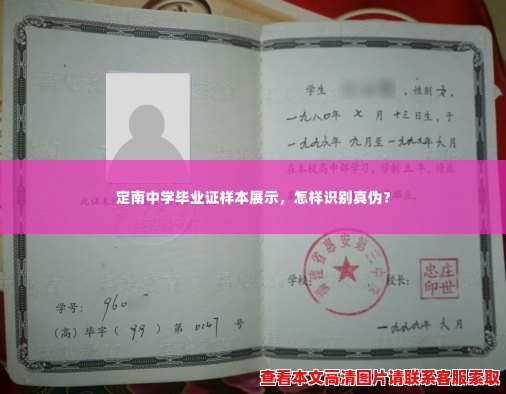 学生 ，性别 女，
一九八〇年 七 月 十三日生，于
一九九六年 九月至一九九九年六月
在本校高中部学习，学制三年，修业
毕业。
此证未
定南中学毕业证样本展示，怎样识别真伪？
福建省惠安第三中学
学校：
校长：
庄世忠印
学号： 960
（高）毕字（ 99 ）第 0147 号
一九九九年 六 月
查看本文高清图片请联系客服索取